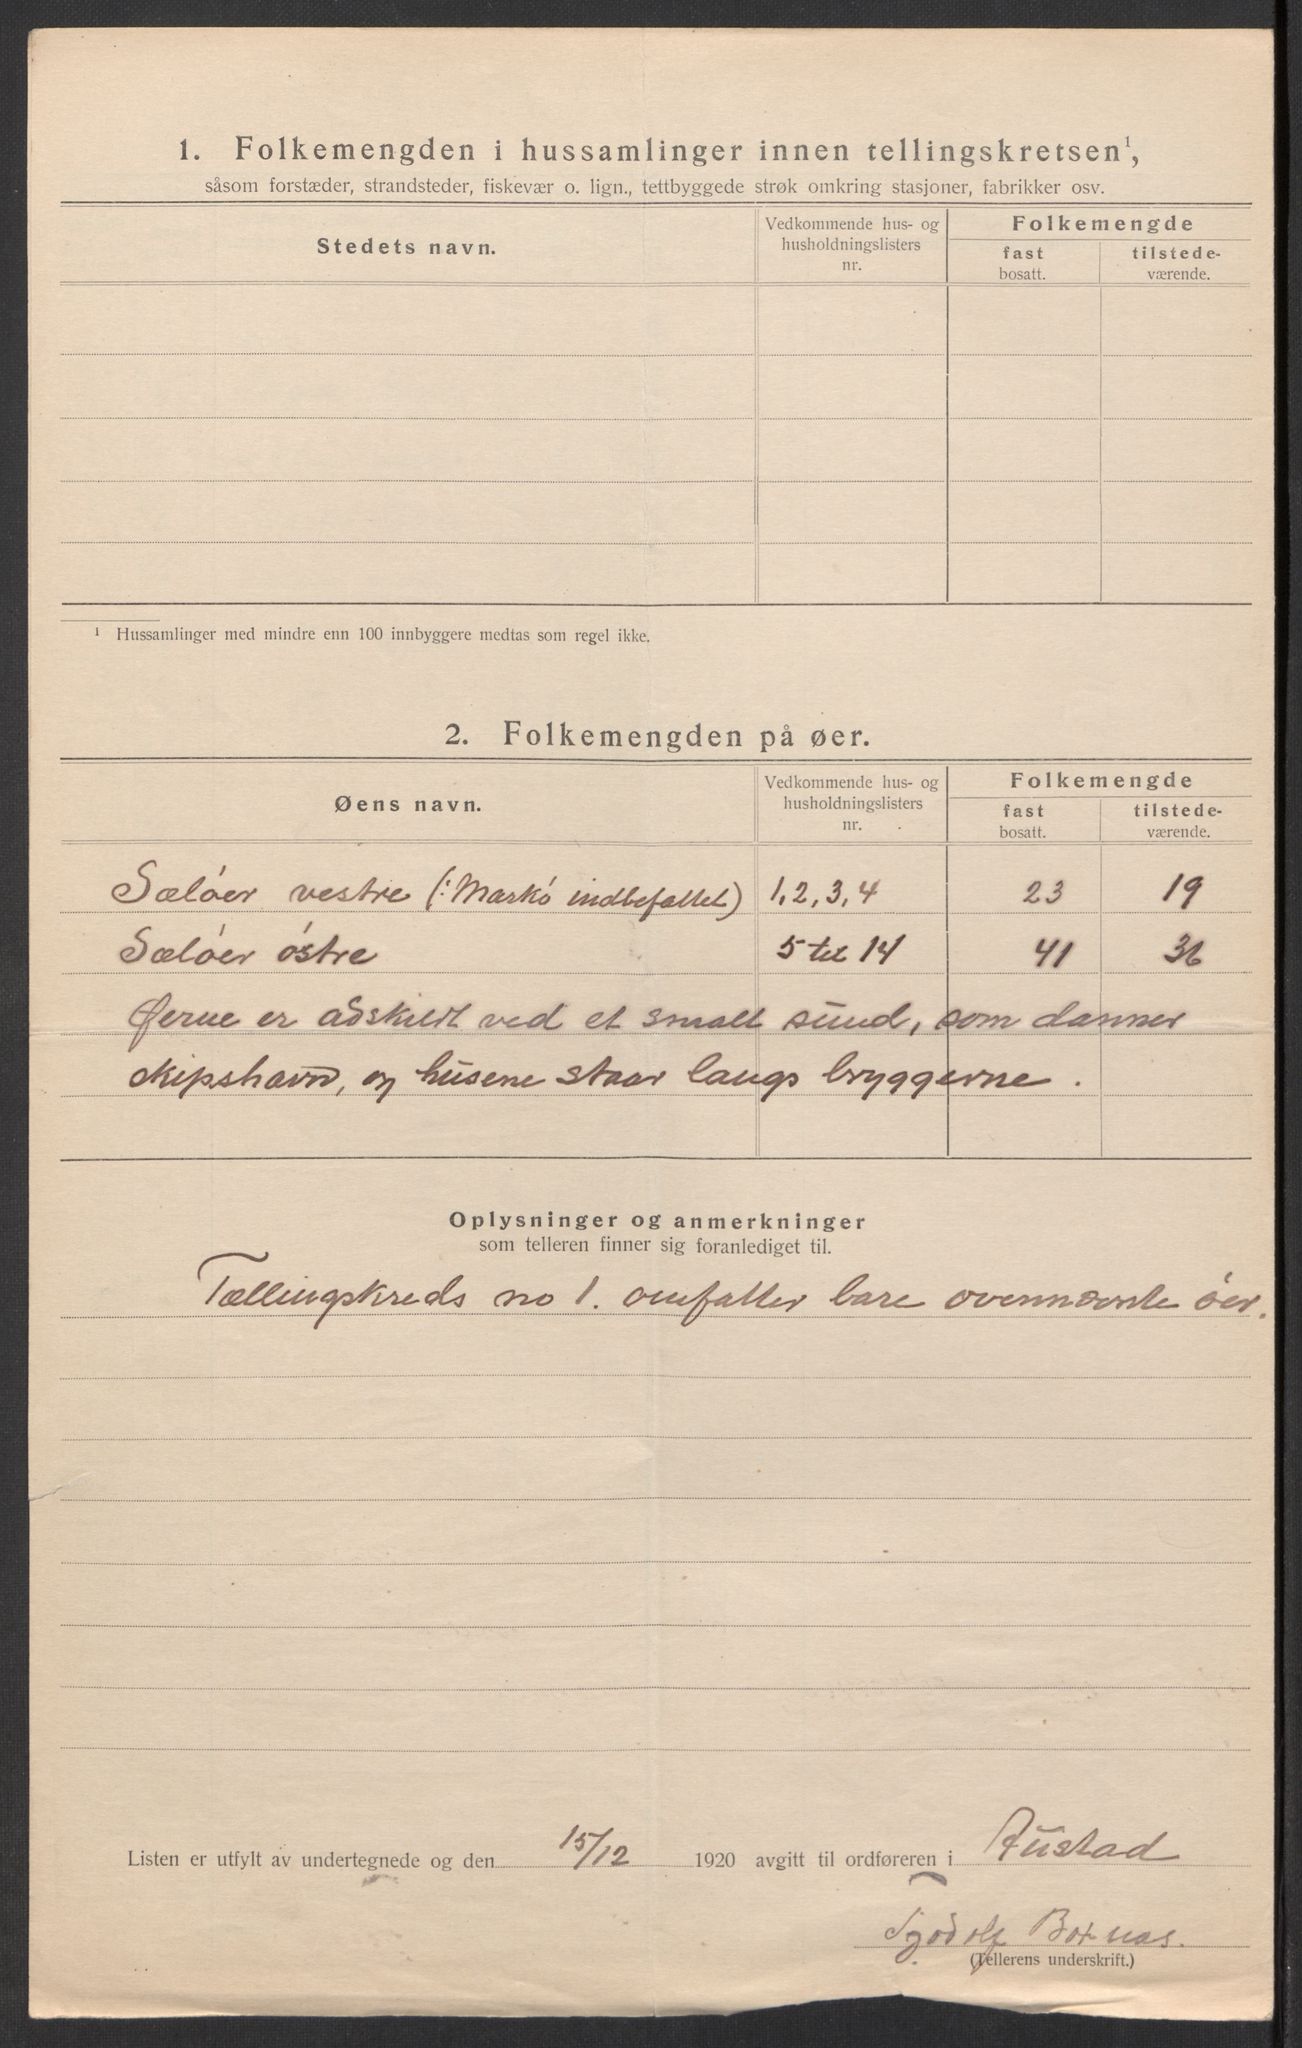 1. Folkemengden i hussamlinger innen tellingskretsen¹,
såsom forstæder, strandsteder, fiskevær o. lign., tettbyggede strøk omkring stasjoner, fabrikker osv.
Stedets navn. Vedkommende hus- og husholdningslisters nr. Folkemengde
fast bosatt. tilstede-værende.
¹ Hussamlinger med mindre enn 100 innbyggere medtas som regel ikke.
2. Folkemengden på øer.
Øens navn. Vedkommende hus- og husholdningslisters nr. Folkemengde
fast bosatt. tilstede-værende.
Sælöer vestre (: Markö indbefattet) 1, 2, 3, 4 23 19
Sælöer östre 5 til 14 41 36
Øerne er adskildt ved et smalt sund, som danner
skipshavn, og husene staar langs bryggerne.
Oplysninger og anmerkninger
som telleren finner sig foranlediget til.
Tællingskreds no 1. omfatter bare ovennævnte öer.
Listen er utfylt av undertegnede og den 15/12 1920 avgitt til ordføreren i Austad
(Tellerens underskrift.)